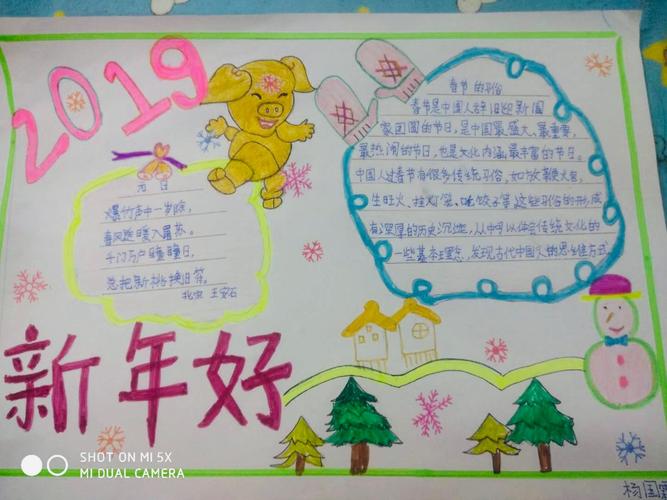 2019
春节的习俗
春节是中国人辞旧迎新阖
家团圆的节日,是中国最盛大、最重要,
最热闹的节日,也是文化内涵最丰富的节日。
中国人过春节有很多传统习俗,如放鞭火包,
生旺火、挂灯笼、吃饺子等这些习俗的形成
有深厚的历史沉淀,从中可以体会传统文化的
一些基本理念,发现古代中国人的思维方式
元日
爆竹声中一岁除,
春风送暖入屠苏。
千门万户瞳瞳日,
总把新桃换旧符。
北宋 王安石
新年好
SHOT ON MI 5X
MI DUAL CAMERA
杨国